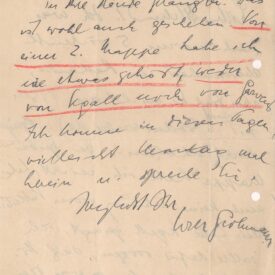 in Ihre Hände gelangte. Das
ist wohl auch geschehen. Von
einer 2. Mappe habe ich
nie etwas gehört, weder
von Kpall noch von
Ich komme in diesen Tagen,
vielleicht Montag mal
herein u. spreche Sie.
Ihr
Will Grohmann